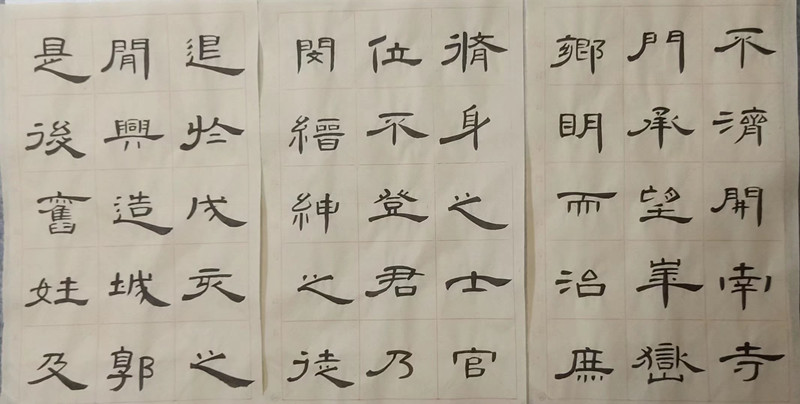 退於戌亥之
閒興造城郭
是後舊姓及
脩身之士官
位不登君乃
閔縉紳之徒
不濟開南寺
門承望崋嶽
鄉明而治庶